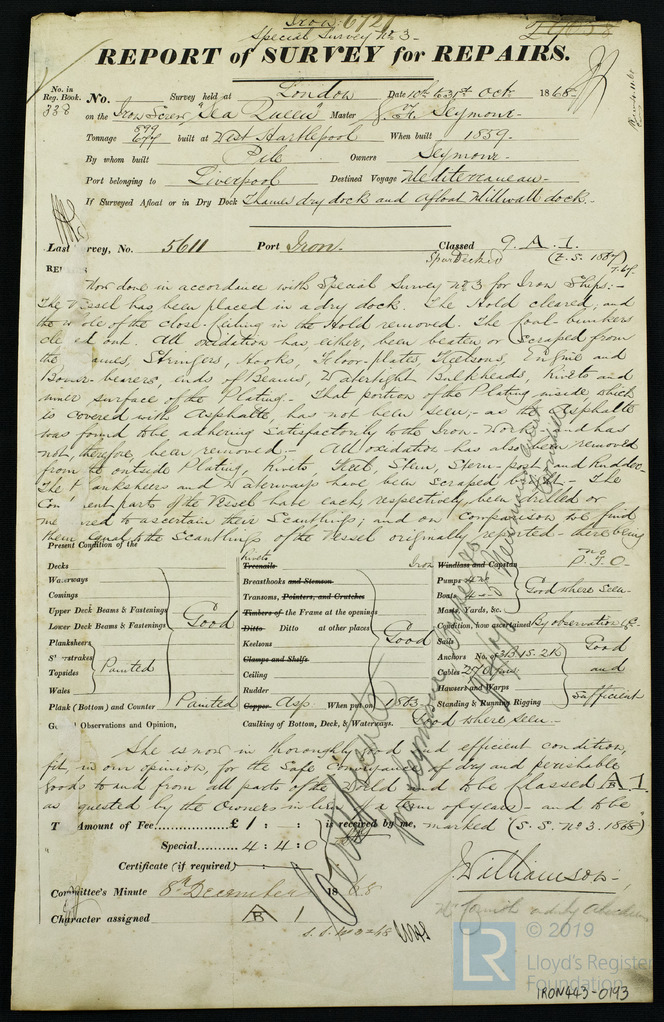 Iron 612
Special Survey No 3 -
REPORT of SURVEY for REPAIRS.
No. in
Reg. Book.
338
No. Survey held at London Date 10th to 31st Oct 1868
on the Iron Screw "Sea Queen" Master Seymour
Tonnage 899 677 built at West Hartlepool When built 1859.
By whom built Pile Owners Seymour
Port belonging to Liverpool Destined Voyage Mediterranean
If Surveyed Afloat or in Dry Dock Thames dry dock and afloat Millwall dock.
Last Survey, No. 5611 Port Iron. Classed 9. A. 1.
Spar Decked
Now done in accordance with Special Survey No 3 for Iron Ships:-
The Vessel has been placed in a dry dock. The Hold cleared, and
the whole of the close-ceiling in the Hold removed. The coal-bunkers
cleared out. All oxidation has either, been beaten or scraped from
the Frames, Stringers, Hooks, Floor-plates, Keelsons, Engine and
Boiler-bearers, ends of Beams, Watertight Bulkheads, Rivets and
inner surface of the Plating.- That portion of the Plating inside which
is covered with Asphalte has not been seen; as the Asphalte
was found to be adhering satisfactorily to the Iron-Work and has
not, therefore, been removed.- All oxidation has also been removed
from the outside Plating, Rivets Keel, Stem, Stern-post and Rudder.
The Planksheers and Waterways have been scraped bright - The
Component parts of the Vessel have each, respectively, been drilled or
measured to ascertain their Scantlings; and on comparison we find
them equal to the Scantlings of the Vessel originally reported - there being
Present Condition of the
Decks
Waterways
Comings
Upper Deck Beams & Fastenings
Lower Deck Beams & Fastenings
Good
Planksheers
Sheerstrakes
Topsides
Wales
Painted
Plank (Bottom) and Counter Painted
Rivets
Treenails
Breasthooks and Stemson
Transoms, Pointers, and Crutches
Timbers of the Frame at the openings
Ditto Ditto at other places
Keelsons
Clamps and Shelfs
Ceiling
Rudder
Good
Copper Asp. When put on 1863
Caulking of Bottom, Deck, & Waterways. Good where seen
Iron Windlass and Capstan
Pumps
Boats
Masts, Yards, &c.
Good where seen
Condition, how ascertained By observation &c.
Sails Good
Anchors No. of 3B. 1S. 2K
Cables 270 fms and
Hawsers and Warps
Standing & Running Rigging Sufficient
General Observations and Opinion,
She is now in thoroughly good and efficient condition,
fit, in our opinion, for the Safe conveyance of dry and perishable
goods to and from all parts of the World and to be Classed A 1
as requested by the Owners in lieu of a term of years - and to be
The Amount of Fee £ 1 : - : is received by me, marked (S. S. No 3. 1868)
Special 4 : 4 : 0
Certificate (if required)
J. Williamson
Committee's Minute 8th December 1868
Character assigned A 1
B
S. S. No 3-68
LR
© 2019
Lloyd's Register
Foundation
IRON443-0193